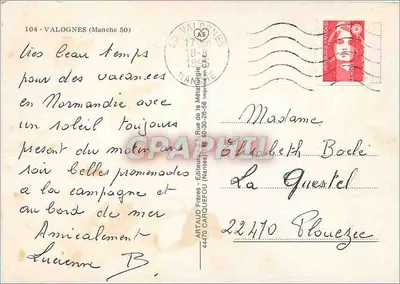 104 - VALOGNES (Manche 50)
50 VALOGNES
MANCHE
très beau temps
pour des vacances
en Normandie avec
un soleil toujours
présent du matin au
soir belles promenades
à la campagne et
au bord de mer
Amicalement
Lucienne B.
ARTAUD Frères - Editeurs, rue de la Métallurgie
44470 CARQUEFOU (Nantes)
Madame
Elisabeth Boclé
La Questel
22470 Plouezec